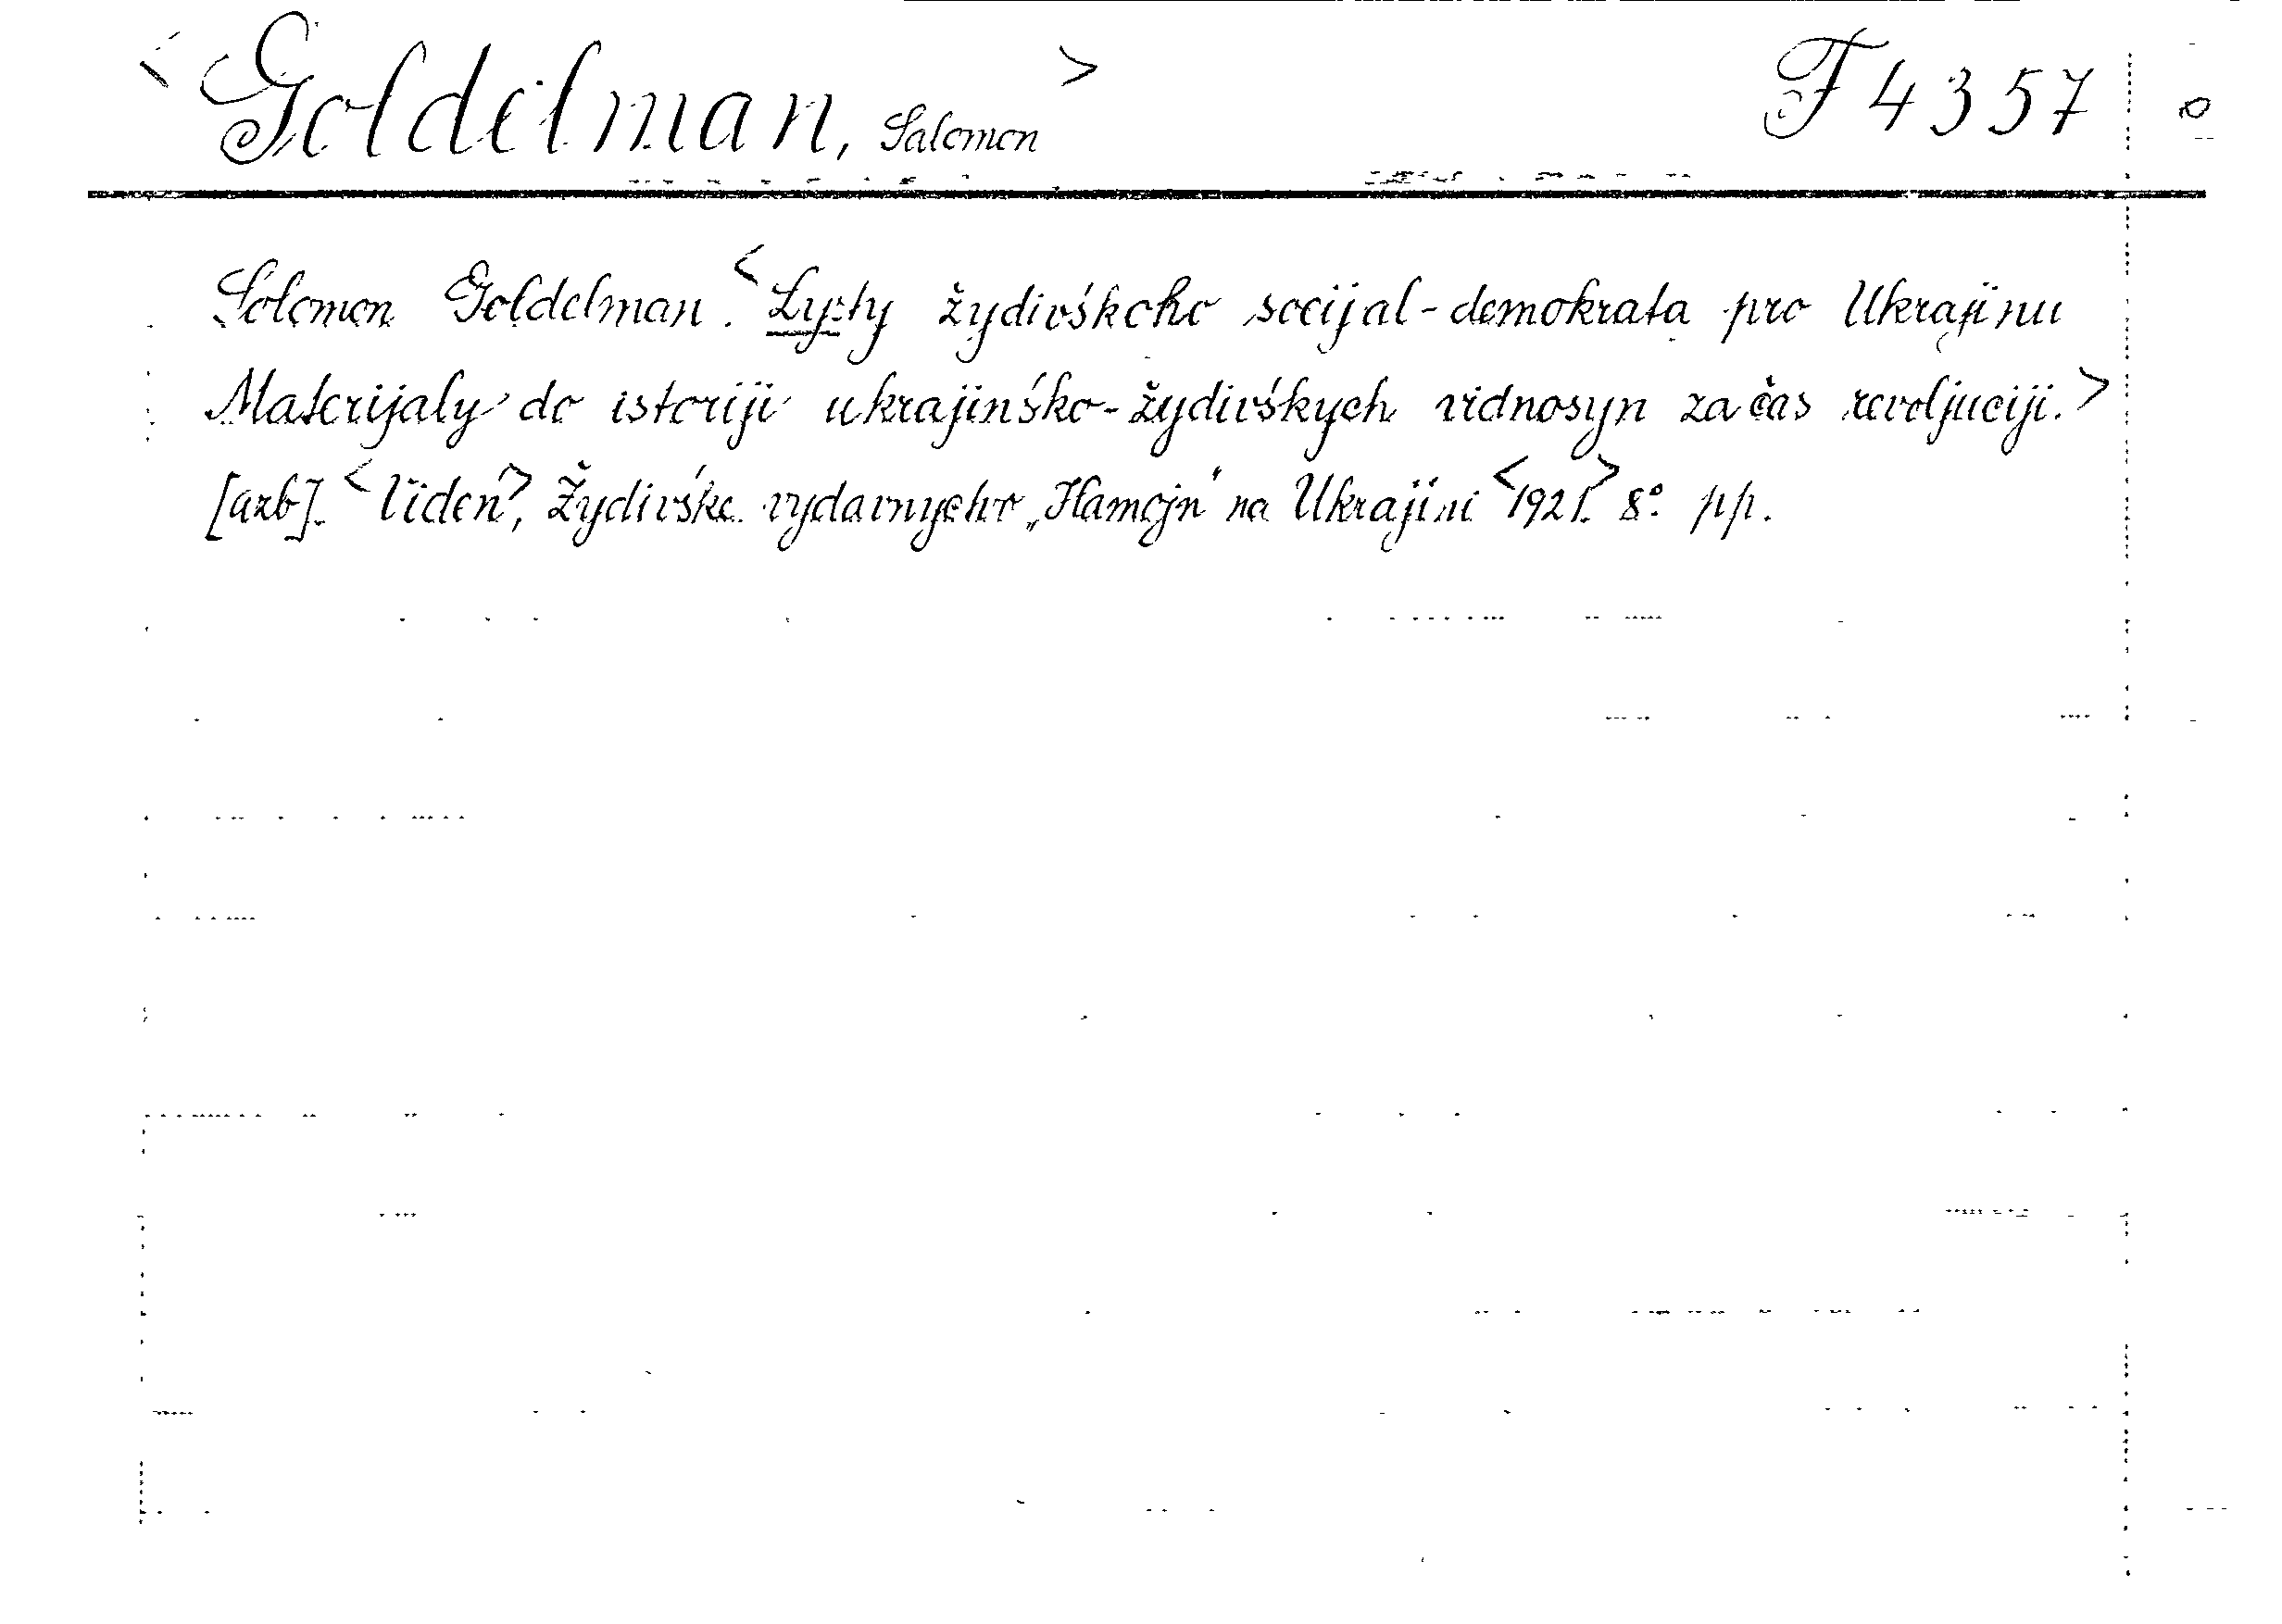 <Goldelman, Salomon> F 4357
Solomon Goldelman. <Lysty žydivśkoho socijal-demokrata pro Ukrajinu
Materijaly do istoriji ukrajinśko-žydivśkych vidnosyn za čas revoljuciji.>
[azb]. <Viden>, Žydivśke vydavnyctvo „Hamojn" na Ukrajini <1921.> 8° pp.